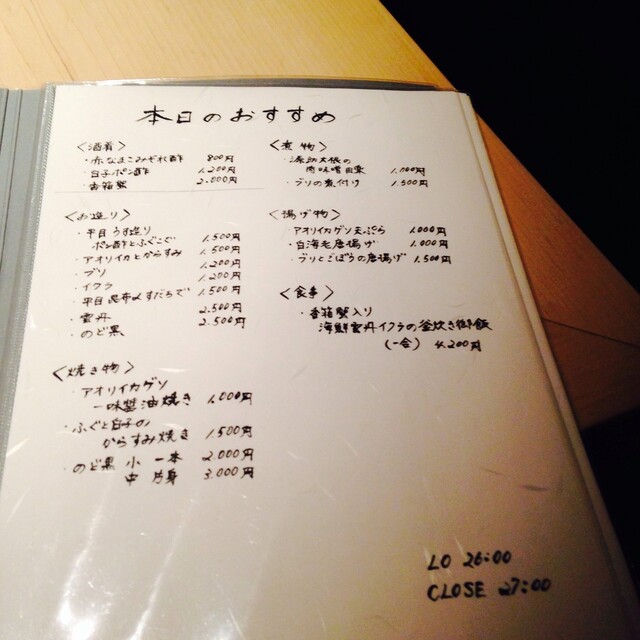 本日のおすすめ
〈酒肴〉
・赤なまこみぞれ酢 800円
・白子ポン酢 1.200円
・香箱蟹 2.000円
〈お造り〉
・平目うす造り
ポン酢とふぐこで 1.500円
・アオリイカとからすみ 1.500円
・ブリ 1.200円
・イクラ 1.200円
・平目昆布〆すだちで 1.500円
・雲丹 2.500円
・のど黒 2.500円
〈焼き物〉
・アオリイカゲソ
一味醤油焼き 1.000円
・ふぐと白子の
からすみ焼き 1.500円
・のど黒 小 一本 2.000円
中 片身 3.000円
〈煮物〉
・源助大根の
肉味噌田楽 1.000円
・ブリの煮付け 1.500円
〈揚げ物〉
・アオリイカゲソ天ぷら 1.000円
・白海老唐揚げ 1.000円
・ブリとごぼうの唐揚げ 1.500円
〈食事〉
・香箱蟹入り
海鮮雲丹イクラの釜炊き御飯
(一合) 4.200円
LO 26:00
CLOSE 27:00